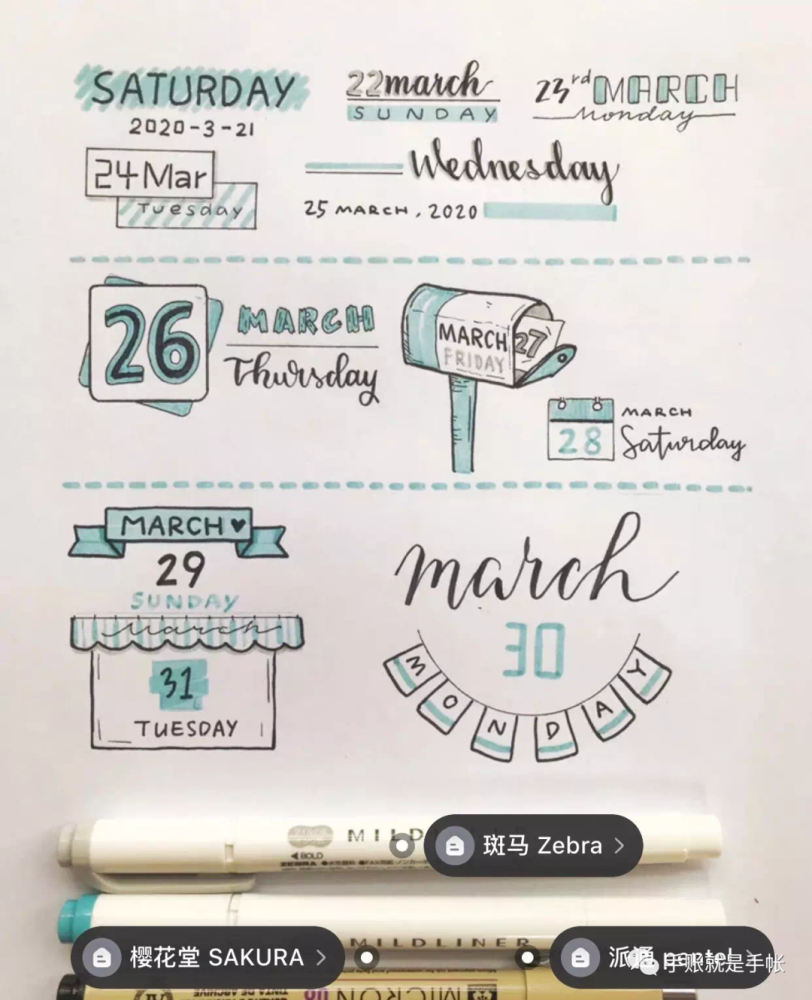 SATURDAY
2020-3-21
22march
SUNDAY
23rd MARCH
Monday
24Mar
Tuesday
Wednesday
25 MARCH, 2020
26
MARCH
Thursday
MARCH
FRIDAY
27
MARCH
28
Saturday
MARCH♥
29
SUNDAY
march
31
TUESDAY
march
30
MONDAY
MILD
◀BOLD
斑马 Zebra >
MILDLINER
樱花堂 SAKURA >
派通 pentel >
手账就是手帐
MICRON 08